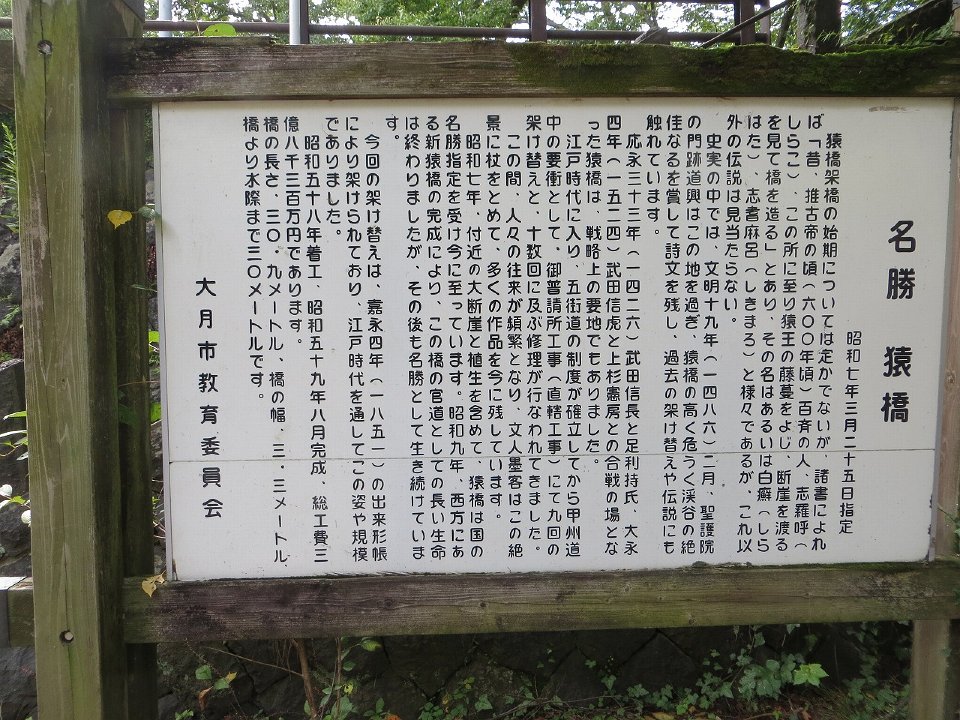 名勝 猿橋
昭和七年三月二十五日指定
猿橋架橋の始期については定かでないが、諸書によれ
ば「昔、推古帝の頃(六〇〇年頃)百斉の人、志羅呼(
しらこ)、この所に至り猿王の藤蔓をよじ、断崖を渡る
を見て橋を造る」とあり、その名はあるいは白癬(しら
はた)、志耆麻呂(しきまろ)と様々であるが、これ以
外の伝説は見当たらない。
史実の中では、文明十九年(一四八六)二月、聖護院
の門跡道興はこの地を過ぎ、猿橋の高く危うく渓谷の絶
佳なるを賞して詩文を残し、過去の架け替えや伝説にも
触れています。
応永三十三年(一四二六)武田信長と足利持氏、大永
四年(一五二四)武田信虎と上杉憲房との合戦の場とな
った猿橋は、戦略上の要地でもありました。
江戸時代に入り、五街道の制度が確立してから甲州道
中の要衝として、御普請所工事(直轄工事)にて九回の
架け替えと、十数回に及ぶ修理が行なわれてきました。
この間、人々の往来が頻繁となり、文人墨客はこの絶
景に杖をとめて、多くの作品を今に残しています。
昭和七年、付近の大断崖と植生を含めて、猿橋は国の
名勝指定を受け今に至っています。昭和九年、西方にあ
る新猿橋の完成により、この橋の官道としての長い生命
は終わりましたが、その後も名勝として生き続けていま
す。
今回の架け替えは、嘉永四年(一八五一)の出来形帳
により架けられており、江戸時代を通してこの姿や規模
でありました。
昭和五十八年着工、昭和五十九年八月完成、総工費三
億八千三百万円であります。
橋の長さ、三〇.九メートル、橋の幅、三.三メートル
橋より水際まで三〇メートルです。
大月市教育委員会